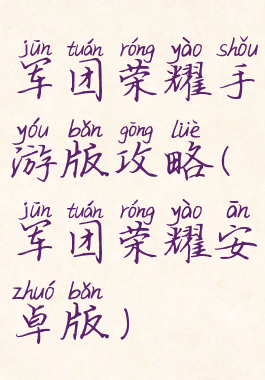 jūn tuán róng yào shǒu
军团荣耀手
yóu bǎn gōng lüè
游版攻略(
jūn tuán róng yào ān
军团荣耀安
zhuó bǎn
卓版)